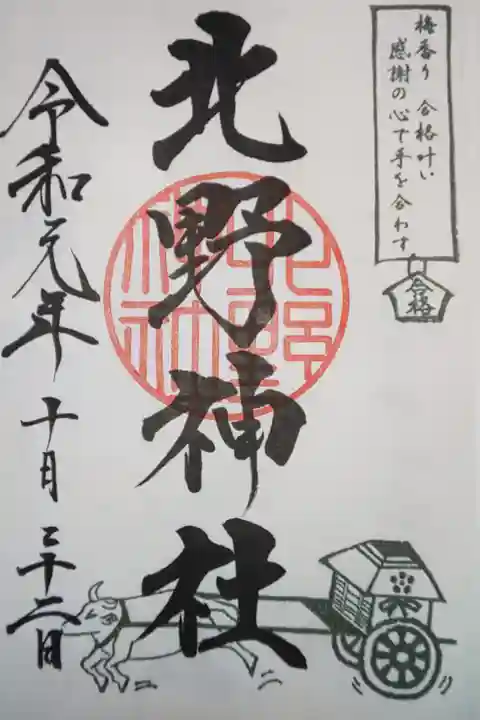 梅香り 合格叶い
感謝の心で手を合わす
合格
北野神社
北野
神社
令和元年十月二十二日